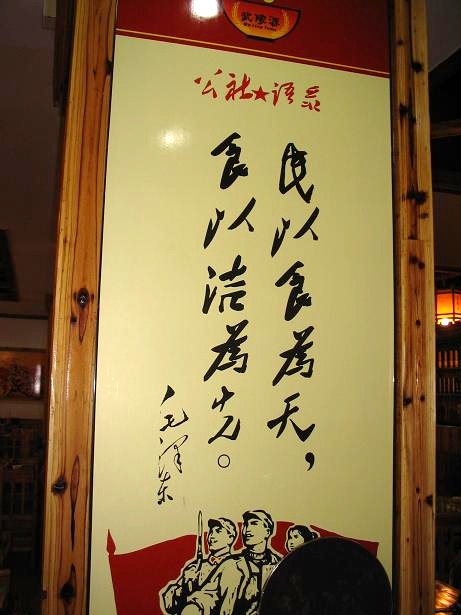 武陵源
公社★语录
民以食为天，
食以洁为先。
毛泽东